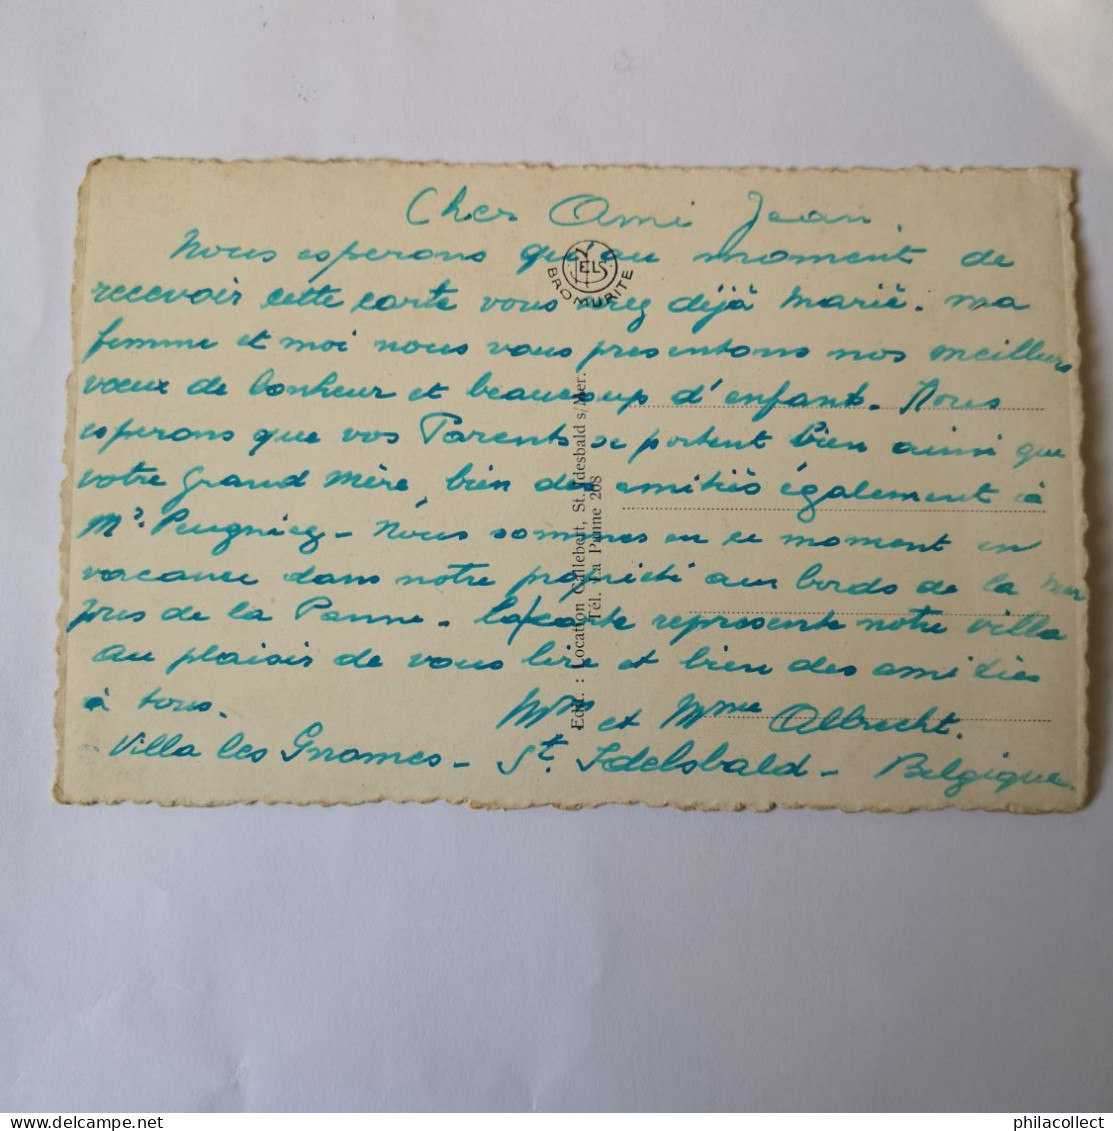 Cher Ami Jean.
Nous esperons qu'au moment de
recevoir cette carte vous serez déjà marié. ma
femme et moi nous vous presentons nos meilleurs
vœux de bonheur et beaucoup d'enfants. Nous
esperons que vos Parents se portent bien ainsi que
votre grand mère, bien des amitiés également à
Mr. Peugniez - Nous sommes en ce moment en
vacance dans notre propriété aux bords de la mer
pres de la Panne. La carte represente notre villa
au plaisir de vous lire et bien des amitiés
à tous.
Mr et Mme Albrecht.
Villa les Gnomes - St. Idelsbald - Belgique.
NELS
BROMURITE
Edit. : Location Callebert, St. Idesbald s/Mer.
Tél. La Panne 208
philacollect